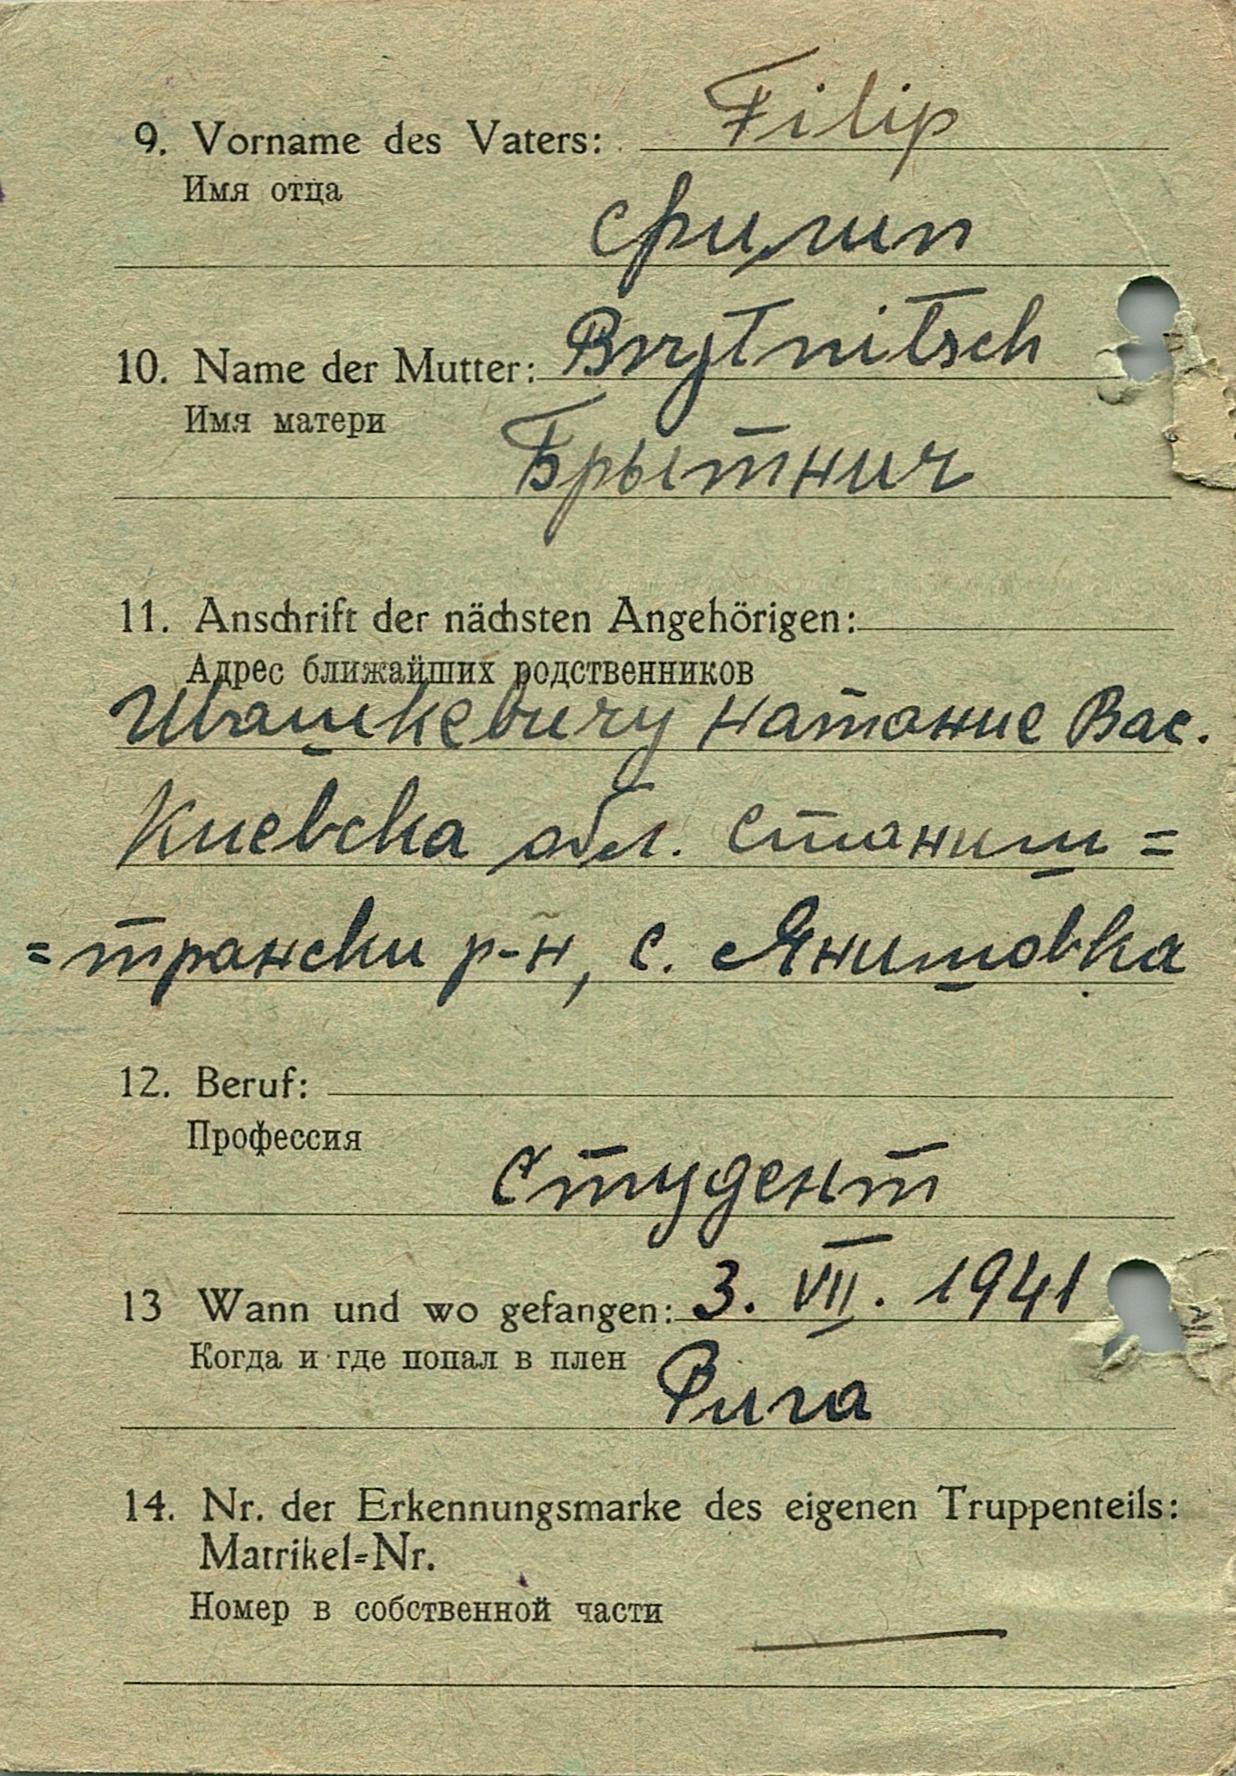 9. Vorname des Vaters: Filip
Имя отца
Филип
10. Name der Mutter: Brytnitsch
Имя матери
Брытнич
11. Anschrift der nächsten Angehörigen:
Адрес ближайших родственников
Ивашкевичу Натание Вас.
Киевска обл. Станиш=
=трански р-н, с. Янишовка
12. Beruf:
Профессия
Студент
13 Wann und wo gefangen: 3. VII. 1941
Когда и где попал в плен
Рига
14. Nr. der Erkennungsmarke des eigenen Truppenteils:
Matrikel=Nr.
Номер в собственной части